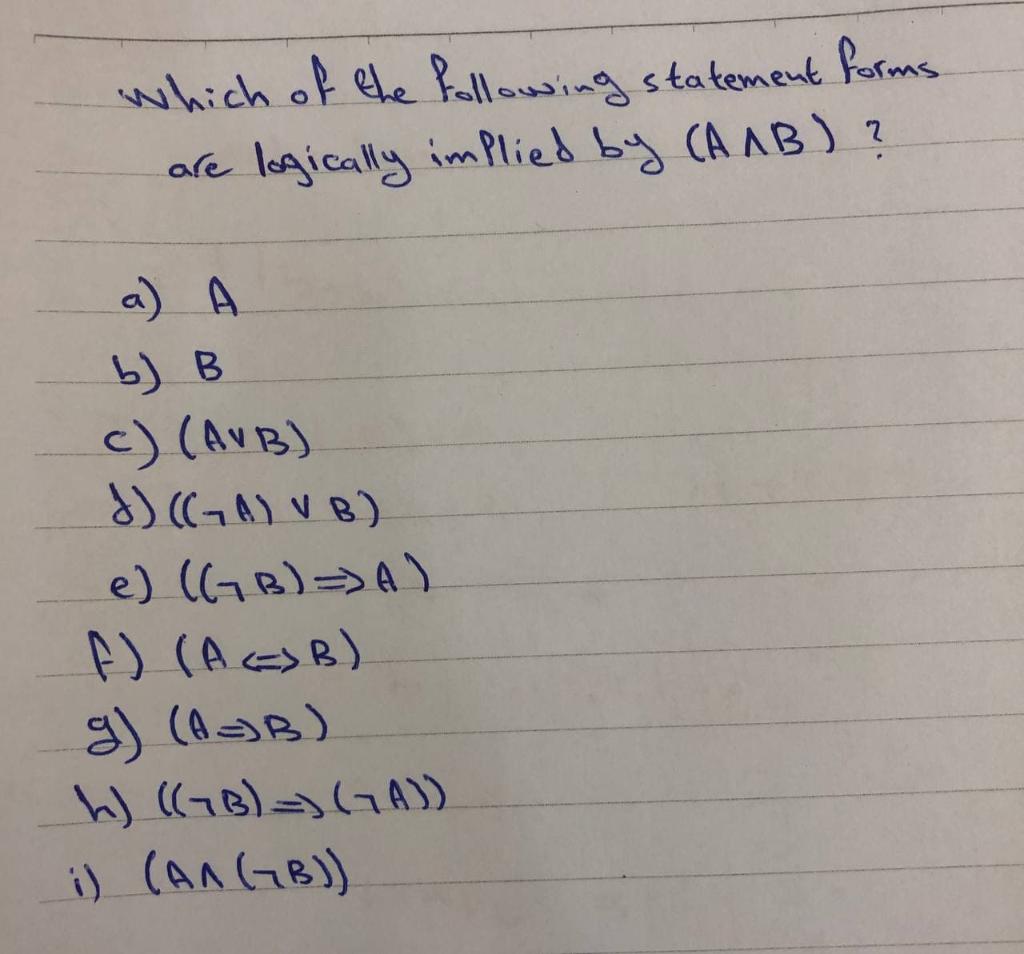 Which of the following statement forms
are logically implied by (A∧B) ?
a) A
b) B
c) (A∨B)
d) ((¬A) ∨ B)
e) ((¬B) ⇒ A)
f) (A ⇔ B)
g) (A ⇒ B)
h) ((¬B) ⇒ (¬A))
i) (A ∧ (¬B))